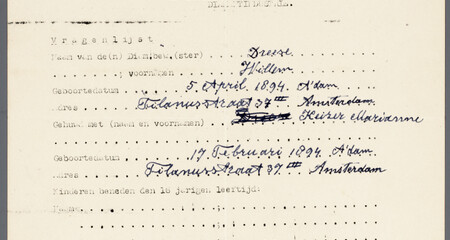 Vragenlijst
Naam van de(n) Diam.bew.(ster) Dreese
" " " voornamen Willem
Geboortedatum 5 April 1894 A'dam
Adres Tolanusstraat 37 III Amsterdam
Gehuwd met (naam en voornamen) Keizer Marianne
Geboortedatum 17 Februari 1894 A'dam
Adres Tolanusstraat 37 III Amsterdam
Kinderen beneden den 18 jarigen leeftijd: